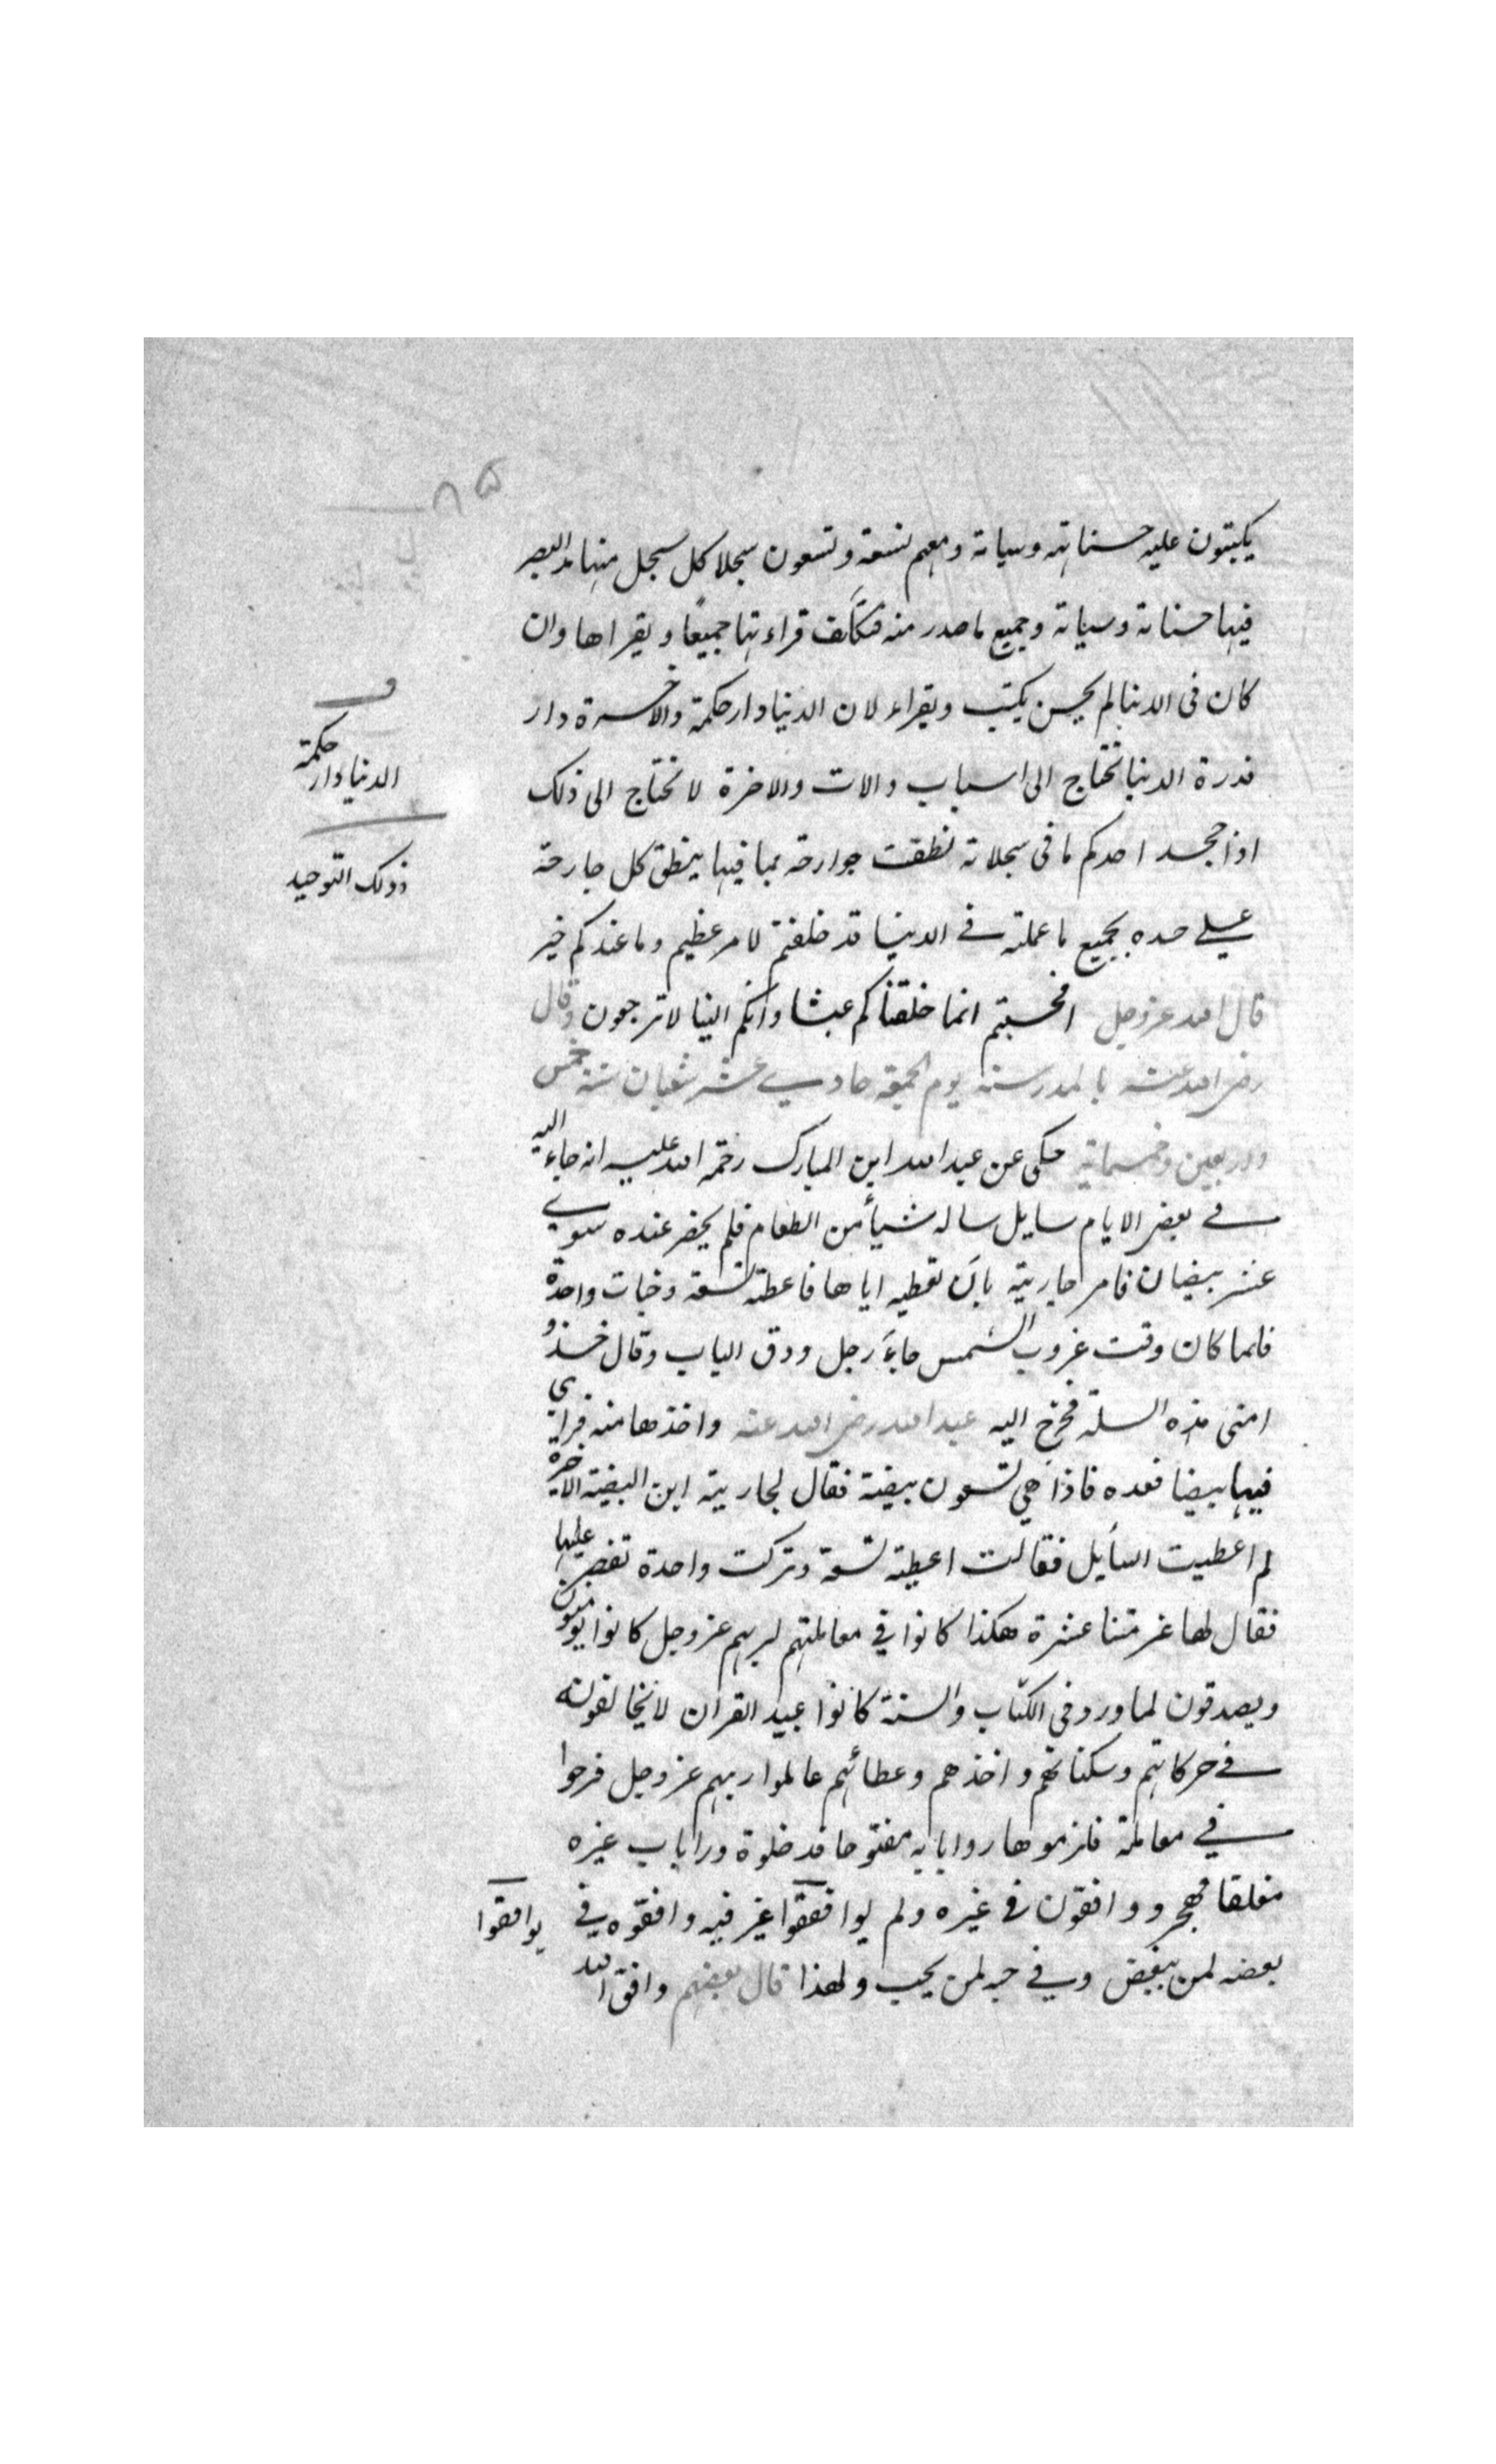 ٨٥
يكتبون عليه حسناته وسياته ومعهم تسعة وتسعون سجلا كل سجل منها مد البصر
فيها حسناته وسياته وجميع ما صدر منه فتكلف قراءتها جميعًا ويقراها وان
كان فى الدنيا لم يحسن يكتب ويقراء لان الدنيا دار حكمة والاخرة دار
قدرة الدنيا تحتاج الى اسباب والات والاخرة لا تحتاج الى ذلك
اذا جحد احدكم ما فى سجلاته نطقت جوارحه بما فيها ينطق كل جارحة
على حده بجميع ما عملته في الدنيا قد خلقتم لامر عظيم وما عندكم خبر
قال الله عز وجل افحسبتم انما خلقناكم عبثا وانكم الينا لا ترجعون وقال
رضى الله عنه بالمدرسة يوم الجمعة حادي عشر شعبان سنة خمس
واربعين وخمسماية حكى عن عبد الله ابن المبارك رحمة الله عليه انه جاء اليه
في بعض الايام سايل ساله شيأ من الطعام فلم يحضر عنده سوي
عشر بيضان فامر جاريته بان تعطيه اياها فاعطته تسعة وخبات واحدة
فلما كان وقت غروب الشمس جاء رجل ودق الباب وقال خذو
امنى هذه السلة فخرج اليه عبد الله رضى الله عنه واخذها منه فراي
فيها بيضا فعده فاذا هي تسعون بيضة فقال لجاريته اين البيضة الاخرة
لم اعطيت السأيل فقالت اعطيته تسعة وتركت واحدة تفطر عليها
فقال لها غرمتنا عشرة هكذا كانوا في معاملتهم لربهم عز وجل كانوا يومنون
ويصدقون لما ورد فى الكتاب والسنة كانوا عبيد القران لا يخالفونه
في حركاتهم وسكناتهم واخذهم وعطائهم عاملوا ربهم عز وجل فرحوا
في معاملته فلزموها راوا بابه مفتوحا فدخلوه وراوا باب غيره
مغلقا فهجروه وافقون فى غيره ولم يوافقوا غير فيه وافقوه في
يوافقوا
بعضه لمن يبغض وفي حبه لمن يحب ولهذا قال بعضهم وافق الله
الدنيا دار حكمة
وذلك التوحيد